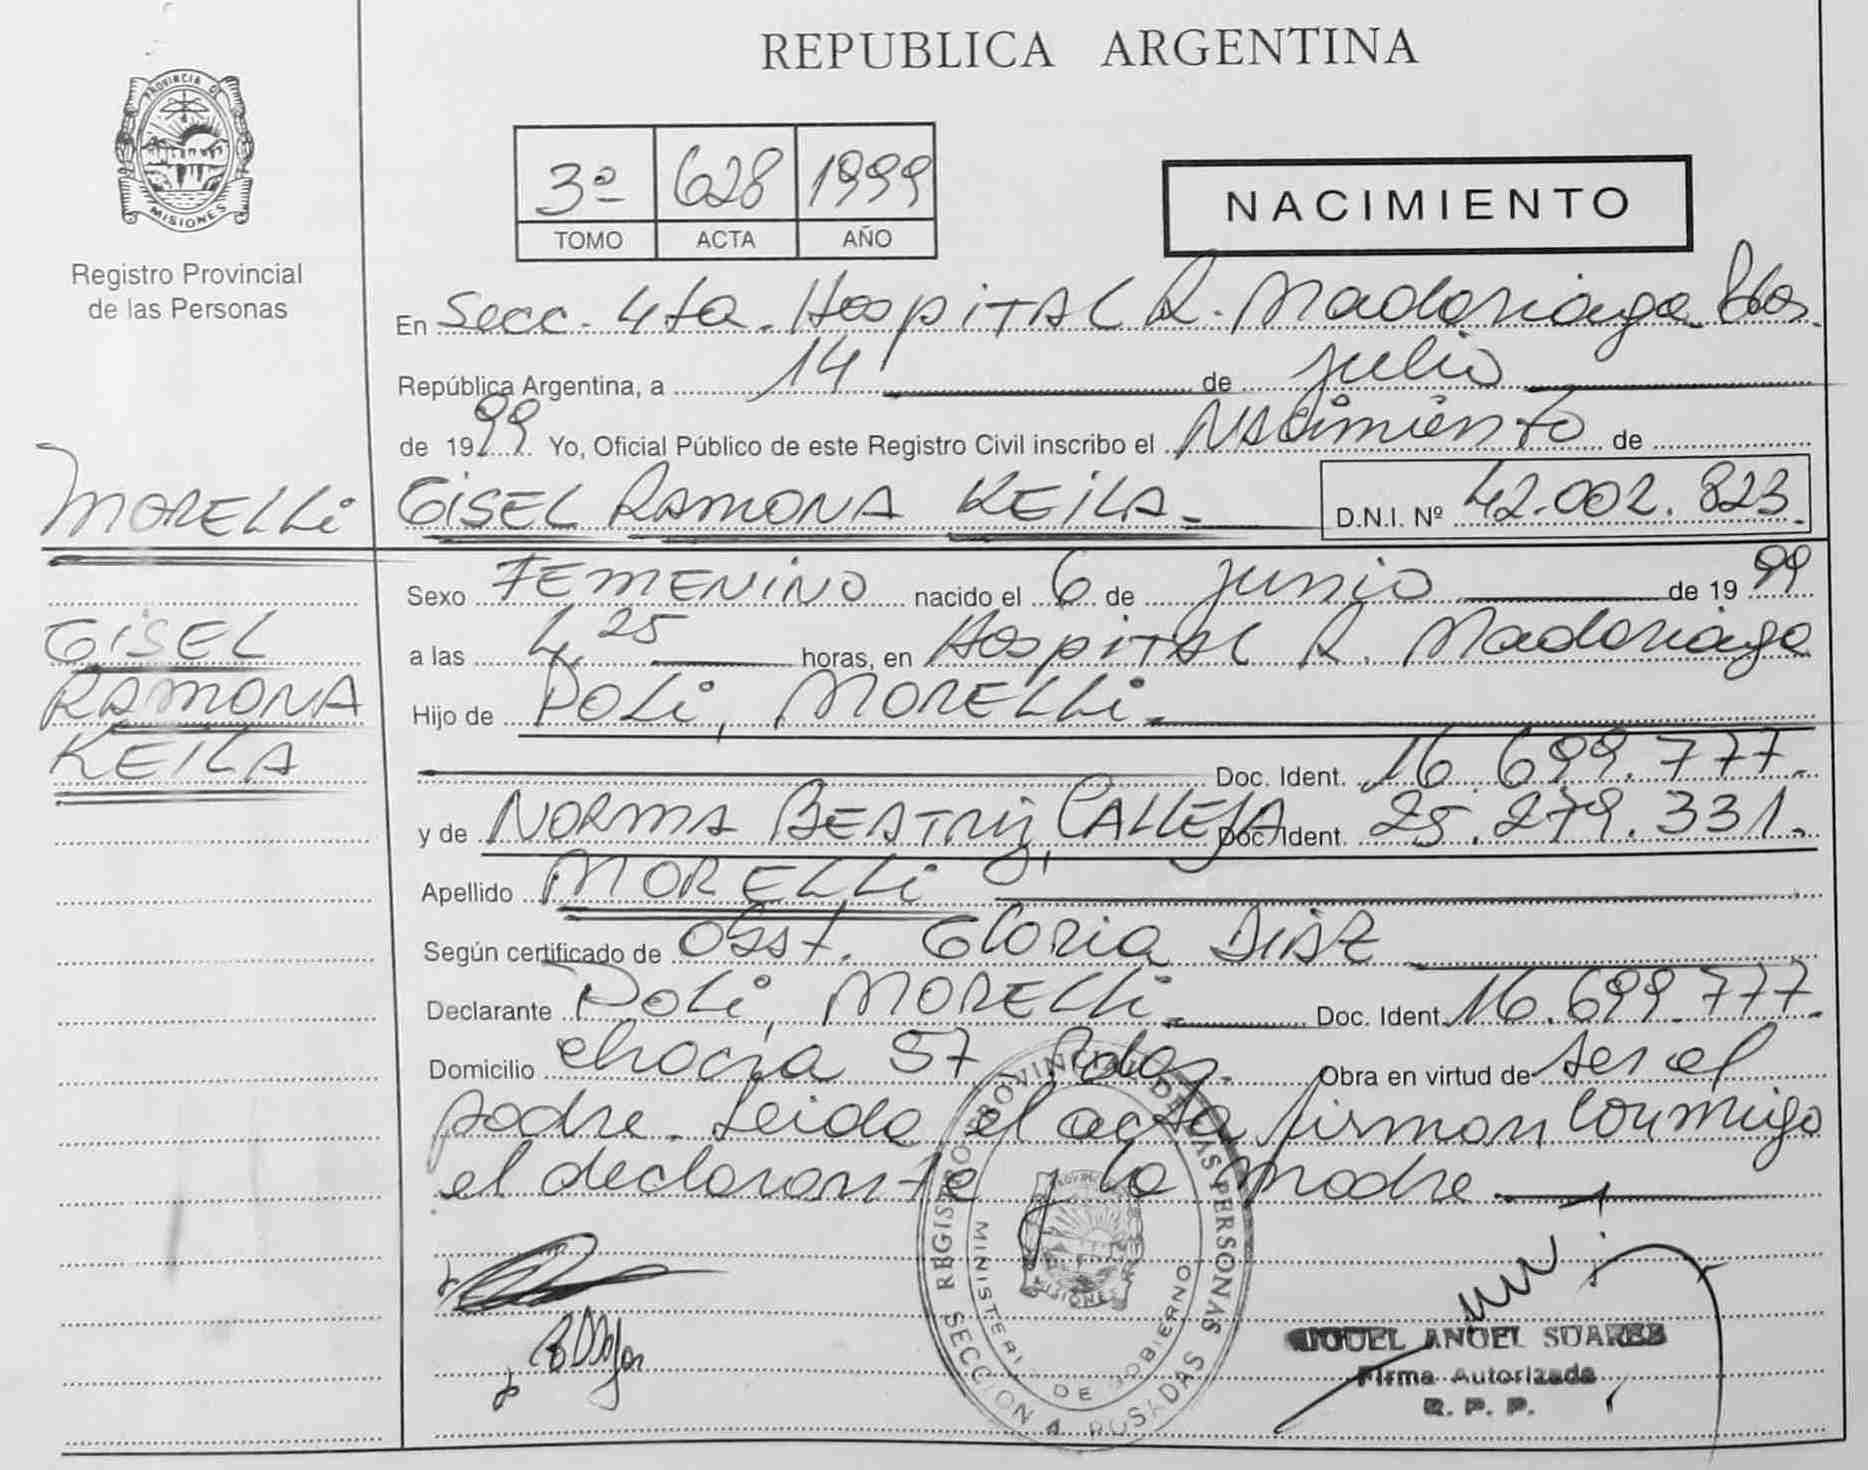 REPUBLICA ARGENTINA
PROVINCIA DE
MISIONES
Registro Provincial
de las Personas
3º 628 1999
TOMO ACTA AÑO
NACIMIENTO
En Secc. 4ta. Hospital R. Madariaga Pdas.
República Argentina, a 14 de julio
de 1999 Yo, Oficial Público de este Registro Civil inscribo el Nacimiento de
MORELLi GiSEL RAMONA KEiLA D.N.I. Nº 42.002.823.
Sexo FEMENiNO nacido el 6 de junio de 1999
GiSEL
a las 4,25 horas, en Hospital R. Madariaga
RAMONA
Hijo de POLi, MORELLi
KEILA
Doc. Ident. 16.699.777.
y de NORMA BEATRiz, CALLEJA Doc. Ident. 25.279.331.
Apellido MORELLi
Según certificado de Obst. Gloria DiAZ
Declarante POLi, MORELLi Doc. Ident. 16.699.777.
Domicilio 57 Pdas. Obra en virtud de ser el
padre. Leida el acta firman conmigo
el declarante y la madre
REGISTRO PROVINCIAL DE LAS PERSONAS
MINISTERI DE GOBIERNO
SECCION 4 POSADAS
MISIONES
MIGUEL ANGEL SUAREZ
Firma Autorizada
R. P. P.